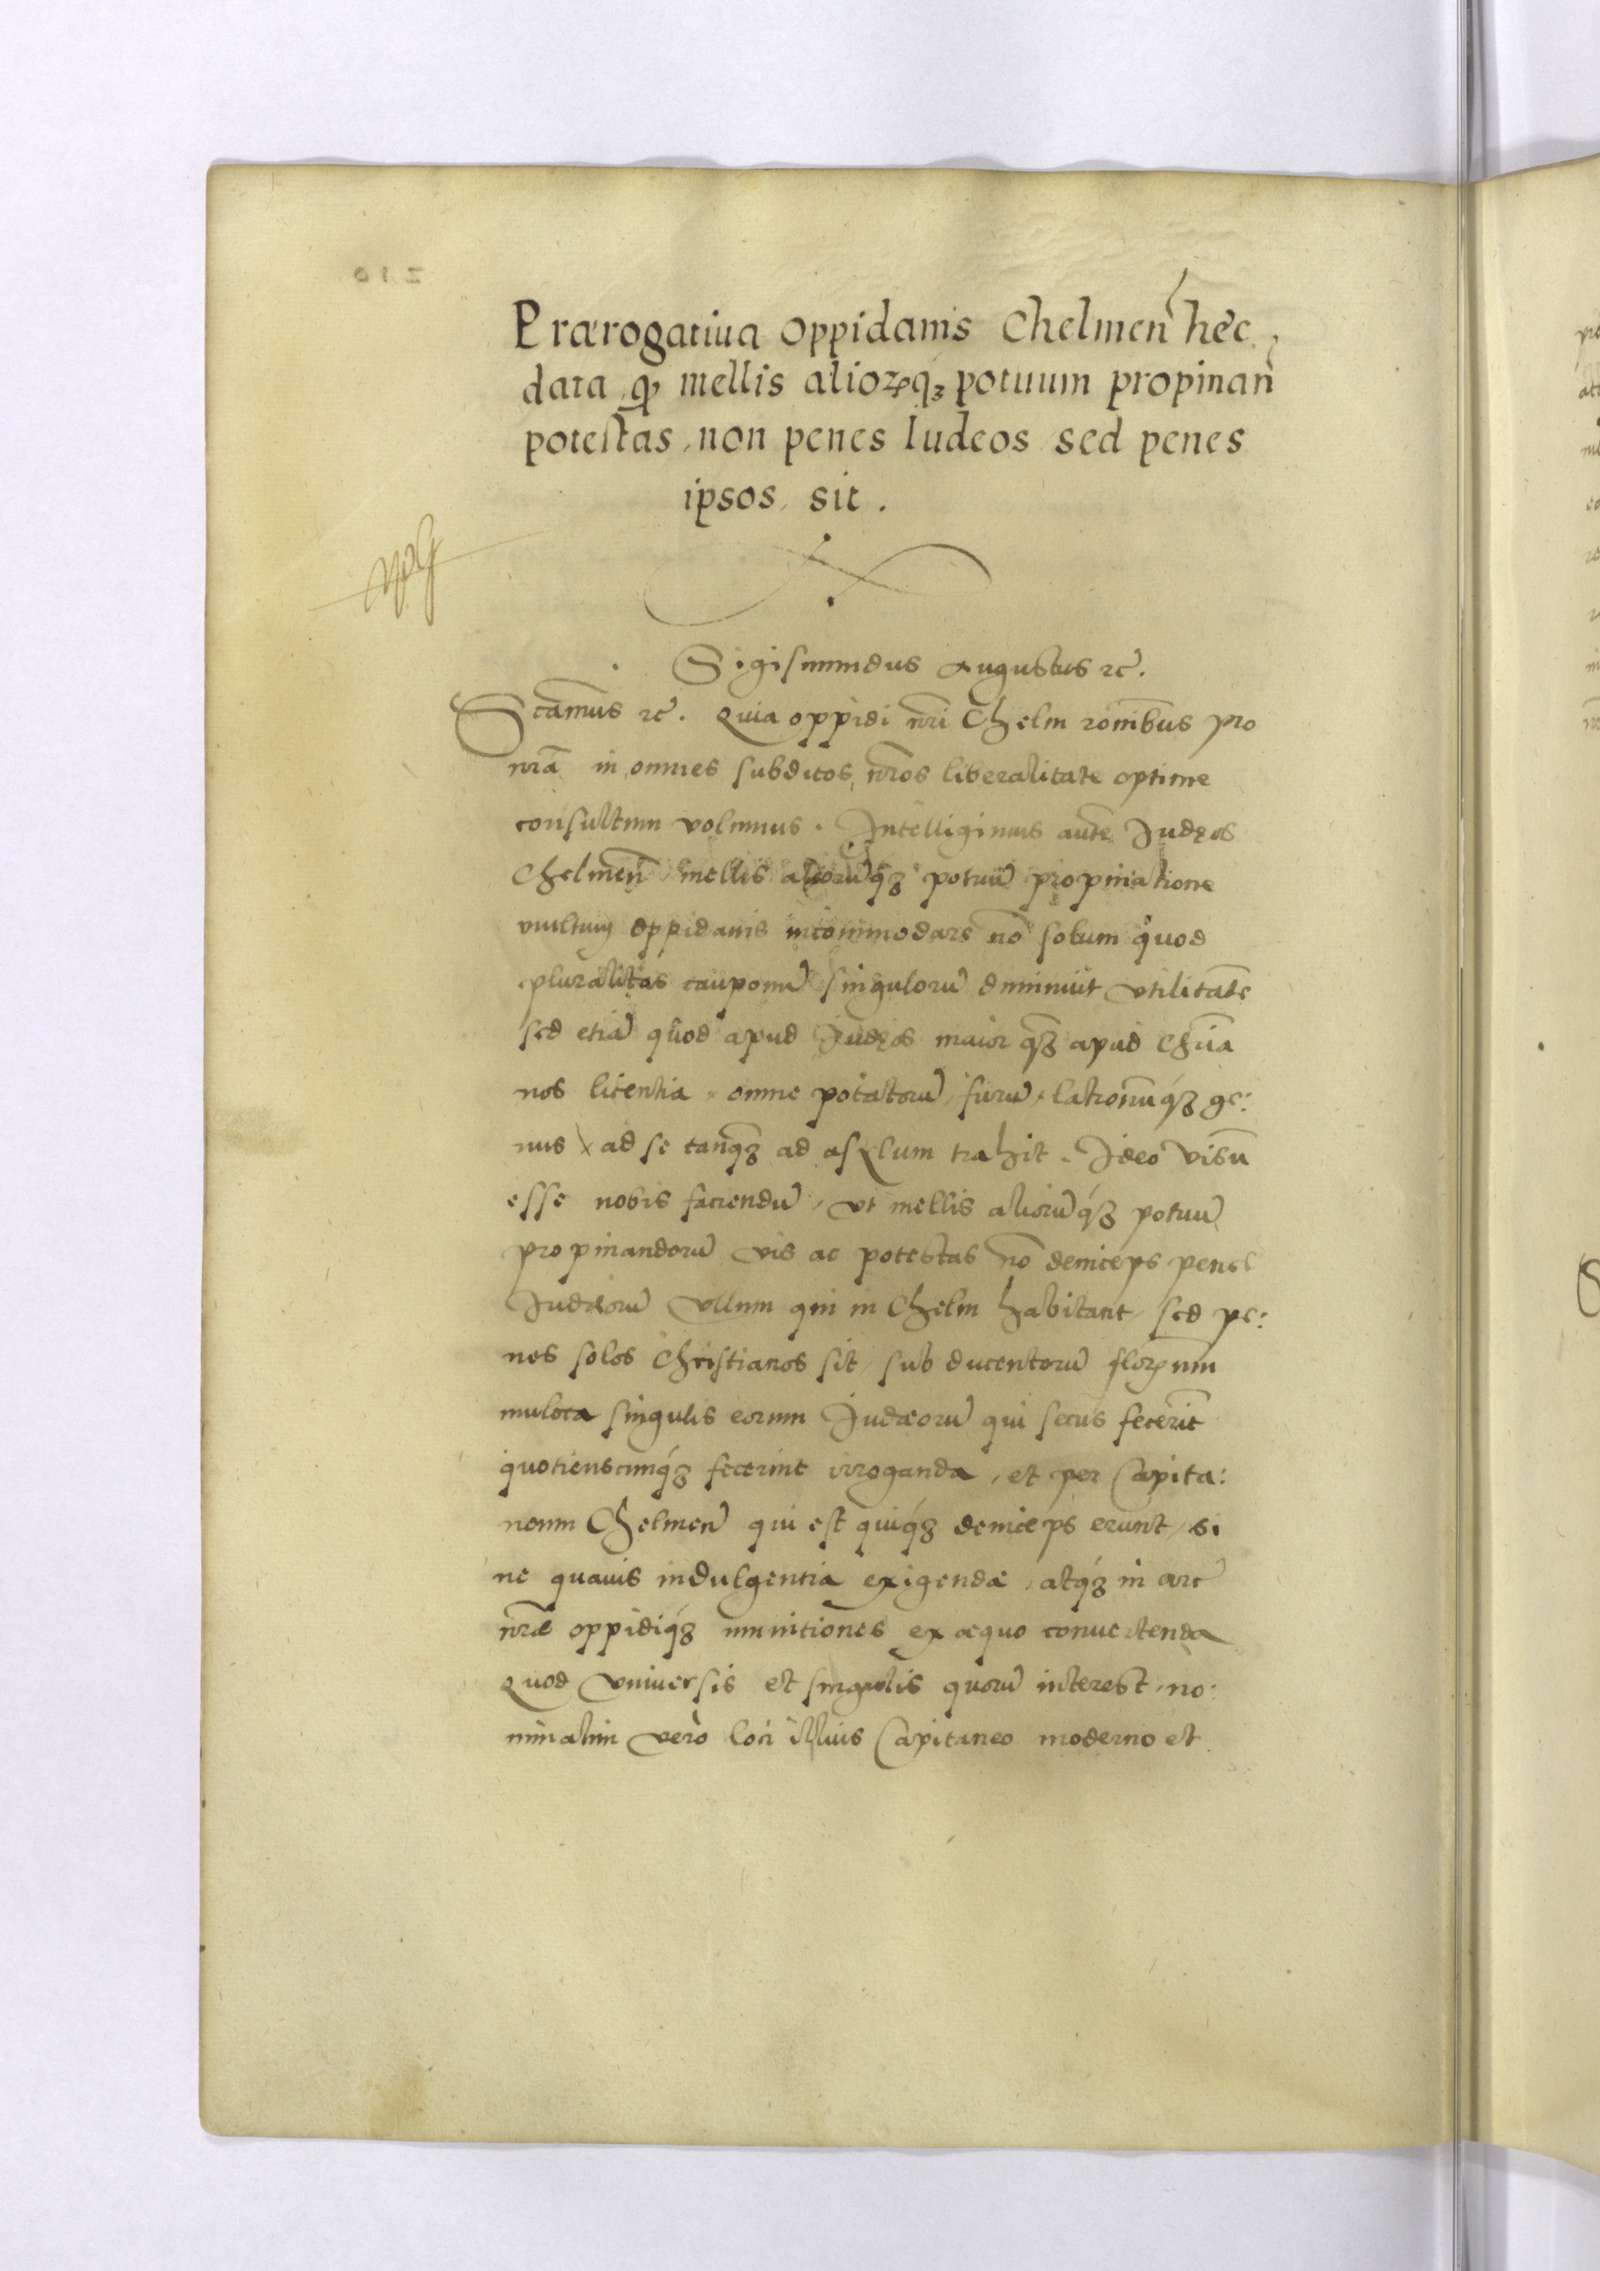 Prærogatiua oppidanis Chelmen̄ hec
data, qꝙ mellis aliorꝫqꝫ potuum propinan̄
potestas, non penes Iudeos sed penes
ipsos, sit.
Sigismundus Augustus ꝛc̄.
Sctam̄us ꝛc̄. Quia oppidi nr̄i Chelm ron̄ibus pro
nr̄a in omnes subditos nr̄os liberalitate optime
consultum volumus. Intelligimus aut̄e Judęos
Chelmen̄ mellis aliorū́qꝫ potuū propinatione
multum oppidanis incommodare nō solum quod
pluralitas cauponū singulorū diminuit vtilitat̄e
sed etiā quod apud Judęos maior qꝫ̄ apud Chr̄ia
nos licentia, omne potatorū, furū, latronū́qꝫ ge:
nus ad se tanqꝫ̄ ad asylum trahit. Ideo visū
esse nobis faciendū, vt mellis aliorū́qꝫ potuū
propinandorū vis ac potestas nō deinceps penes
Judæorū vllum qui in Chelm habitant, sed pe:
nes solos Christianos sit, sub ducentorū florenum
mulcta singulis eorum Judæorū qui secus fecerīt
quotienscunqꝫ fecerint irroganda, et per Capita:
neum Chelmen̄ qui est quiqꝫ deinceps erunt, si
ne quauis indulgentia exigendæ, atqꝫ in arc̄
nr̄æ oppidiqꝫ munitiones ex æquo conuertenda
Quod vniuersis et singulis quorū interest, no:
minatim vero loci illius Capitaneo moderno et